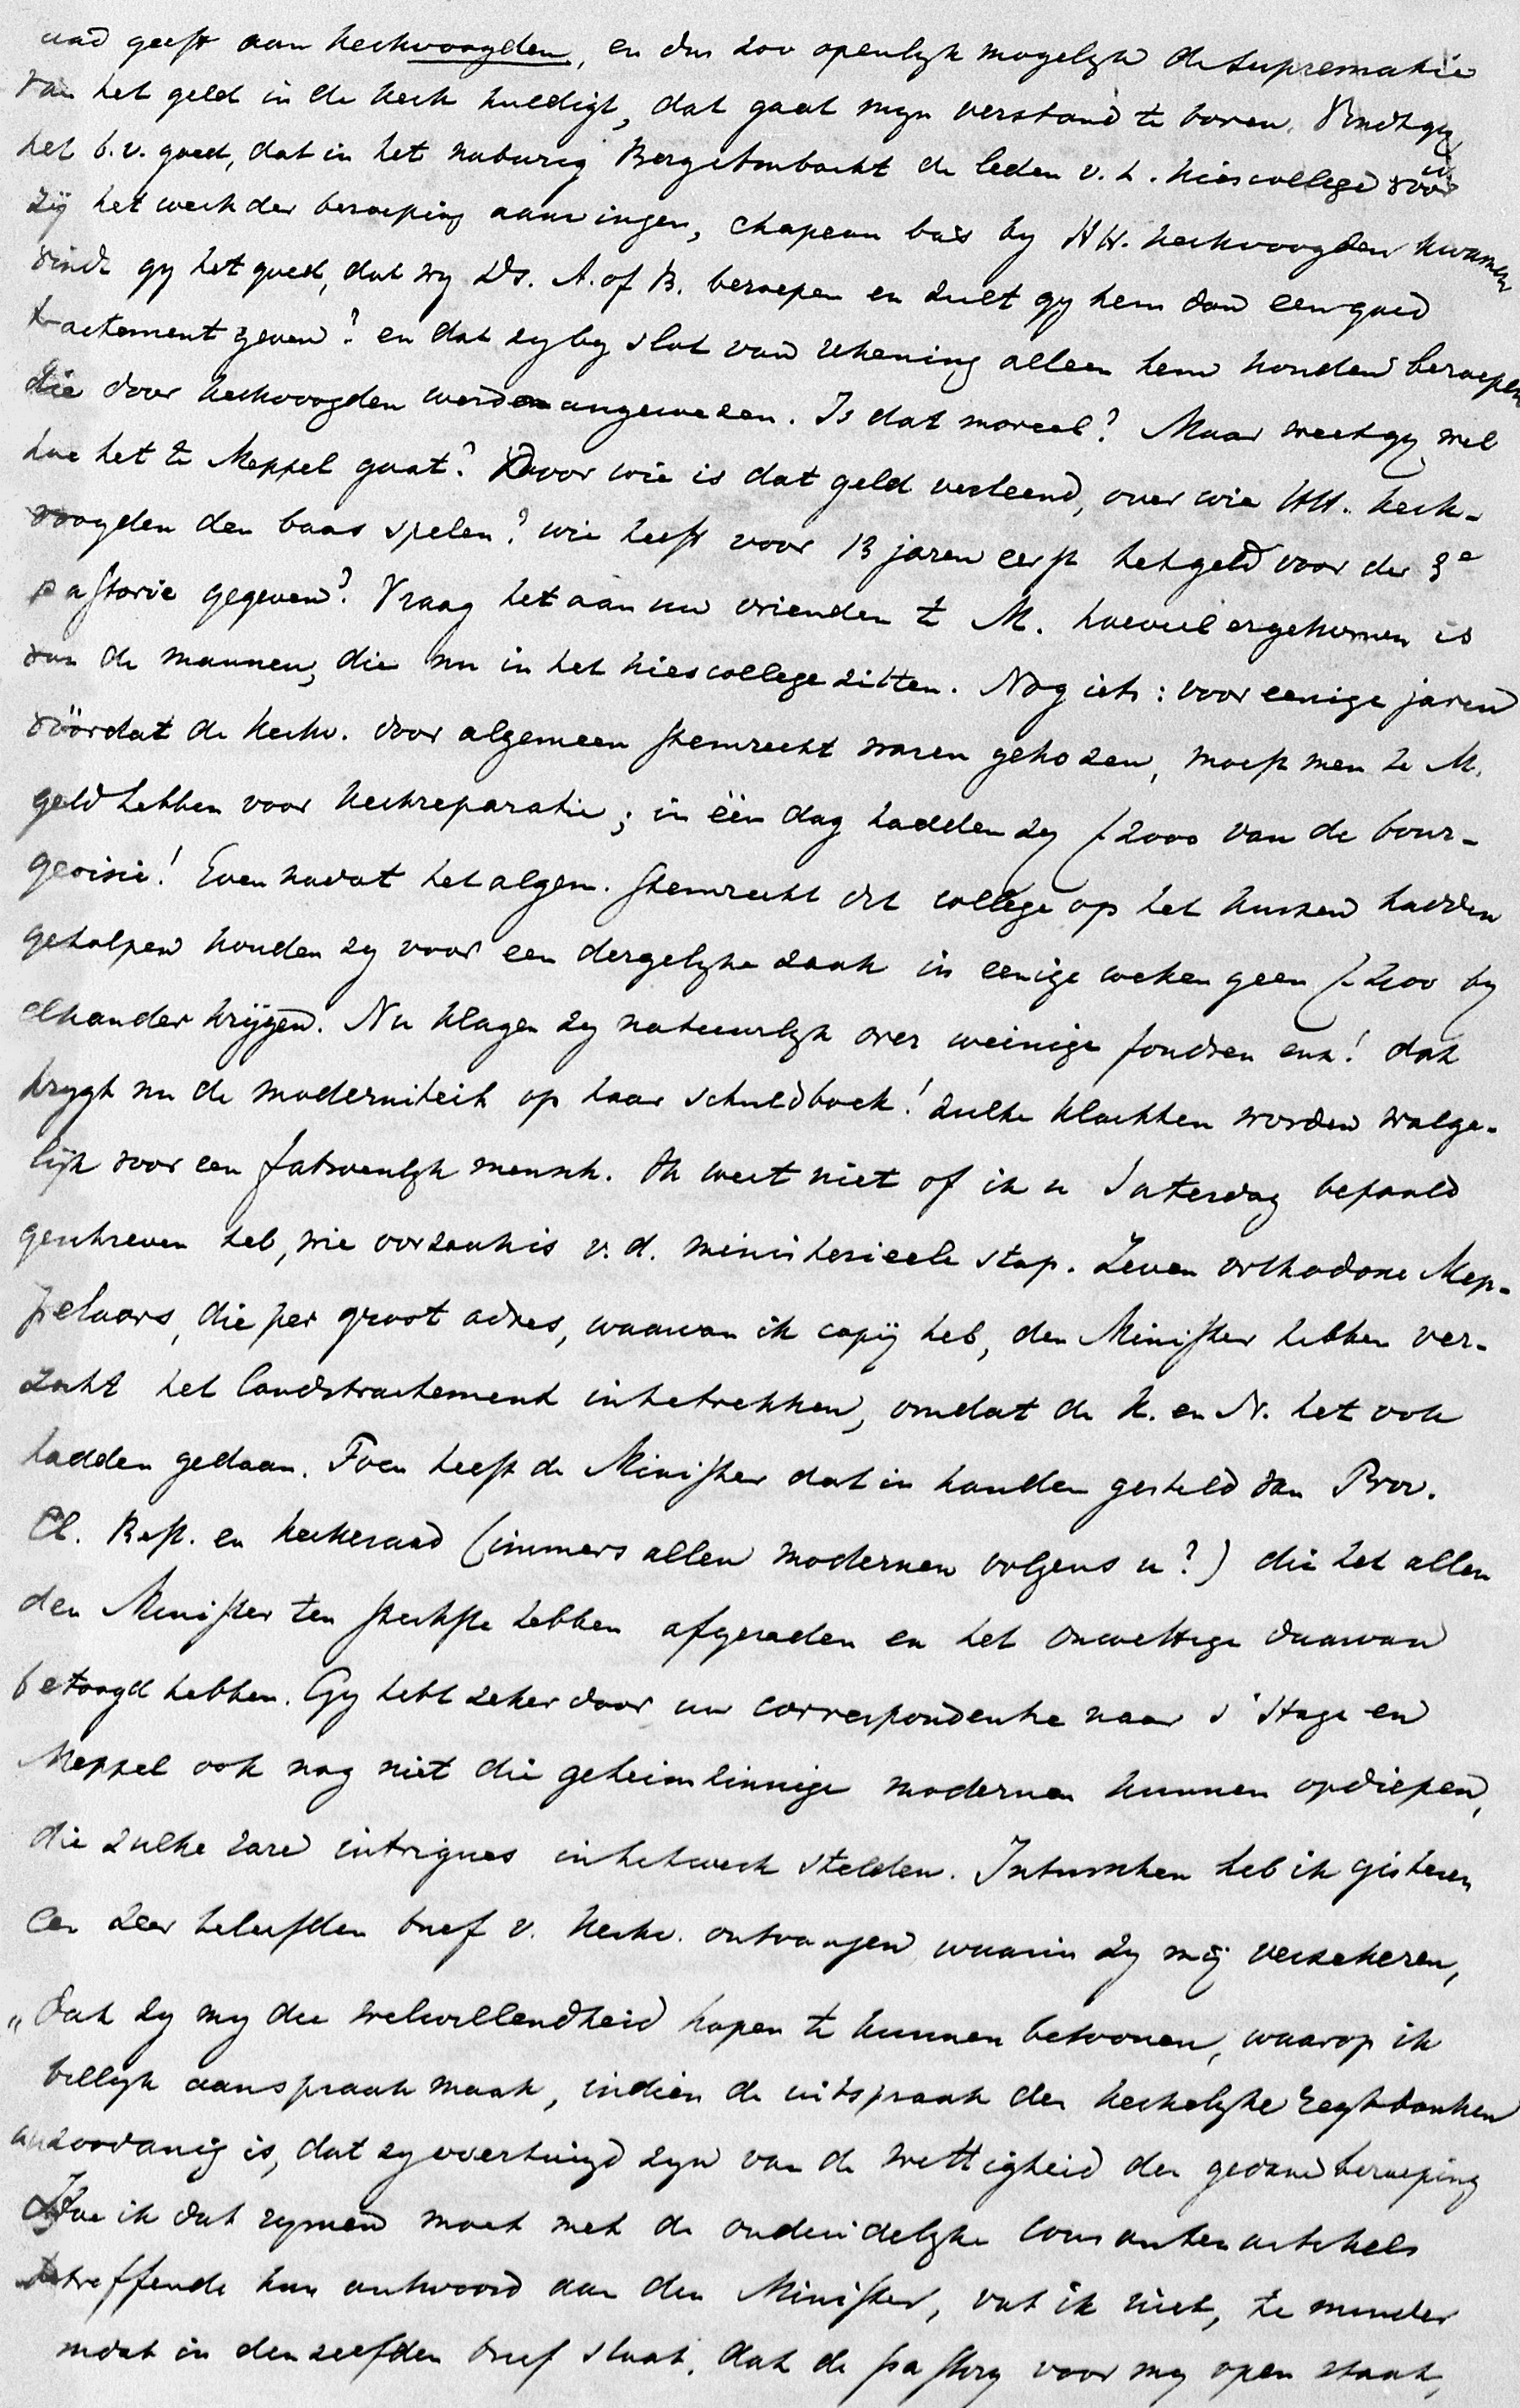 raad geeft aan kerkvoogden, en dus zoo openlyk mogelyk de suprematie
van het geld in de kerk huldigt, dat gaat myn verstand te boven. Vindt gy
het b.v. goed, dat in het naburig Bergambacht de leden v. h. kiescollege vóór
zij het werk der beroeping aanvingen, chapeau bas by HH. kerkvoogden kwamen
vindt gy het goed, dat wy Ds. A. of B. beroepen en zult gy hem dan een goed
tractement geven? en dat zy by slot van rekening alleen hem konden beroepen
die door kerkvoogden werd aangewezen. Is dat moreel? Maar weet gy wel
hoe het te Meppel gaat? Door wie is dat geld verleend, over wie HH. kerk-
voogden den baas spelen? wie heeft voor 13 jaren eerst het geld voor de 3e
pastorie gegeven? Vraag het aan uw vrienden te M. hoeveel er gekomen is
van de mannen, die nu in het kiescollege zitten. Nog iets: voor eenige jaren
vóórdat de kerkv. door algemeen stemrecht waren gekozen, moest men te M.
geld hebben voor kerkreparatie; in één dag hadden zy f 2000 van de bour-
geoisie! Even nadat het algem. stemrecht dit college op het kussen hadden
geholpen konden zy voor een dergelyke zaak in eenige weken geen f 200 by
elkander krijgen. Nu klagen zy natuurlyk over weinige fondsen enz! dat
krygt nu de moderniteit op haar schuldboek! zulke klachten worden walge-
lijk voor een fatsoenlyk mensch. Ik weet niet of ik u Saterdag bepaald
geschreven heb, wie oorzaak is v. d. ministerieele stap. Zeven orthodoxe Mep-
pelaars, die per groot adres, waarvan ik copij heb, den Minister hebben ver-
zocht het landstractement in te trekken, omdat de K. en N. het ook
hadden gedaan. Toen heeft de Minister dat in handen gesteld van Prov.
Cl. Best. en kerkeraad (immers allen modernen volgens u?) die het allen
den Minister ten sterkste hebben afgeraden en het onwettige daarvan
betoogd hebben. Gy hebt zeker door uw correspondentie naar s'Hage en
Meppel ook nog niet die geheimzinnige modernen kunnen opdiepen,
die zulke rare intrigues in het werk stelden. Intusschen heb ik gisteren
een zeer beleefden brief v. kerkv. ontvangen waarin zy mij verzekeren,
"dat zy my die welwillendheid hopen te kunnen betoonen, waarop ik
billyk aanspraak maak, indien de uitspraak der kerkelyke regtbanken
zoodanig is, dat zy overtuigd zyn van de wettigheid der gedane beroeping
Hoe ik dat rymen moet met de onduidelyke courantenartikels
betreffende hun antwoord aan den Minister, vat ik niet, te minder
omdat in denzelfden brief staat, dat de pastory voor my open staat,